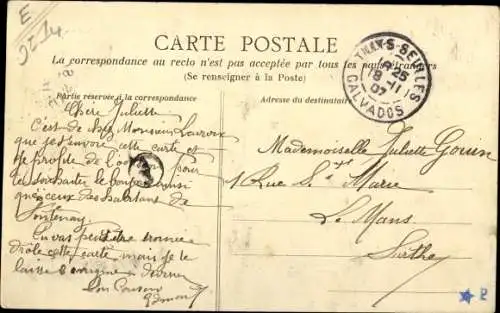 E
CARTE POSTALE
La correspondance au recto n'est pas acceptée par tous les pays étrangers
(Se renseigner à la Poste)
Partie réservée à la correspondance
Adresse du destinataire
S-SEULLES
18 25
8 - 11
07
CALVADOS
Chère Juliette
C'est de chez Monsieur Lacroix
que je t'envoie cette carte et
je profite de pour
te souhaiter le bonjour ainsi
que ceux des habitants de
Fontenay.
Tu vas peut être trouver
drôle cette carte mais je te
laisse
Ton Cousin
Edmond
Mademoiselle Juliette
1 Rue Ste Marie
Le Mans
Sarthe